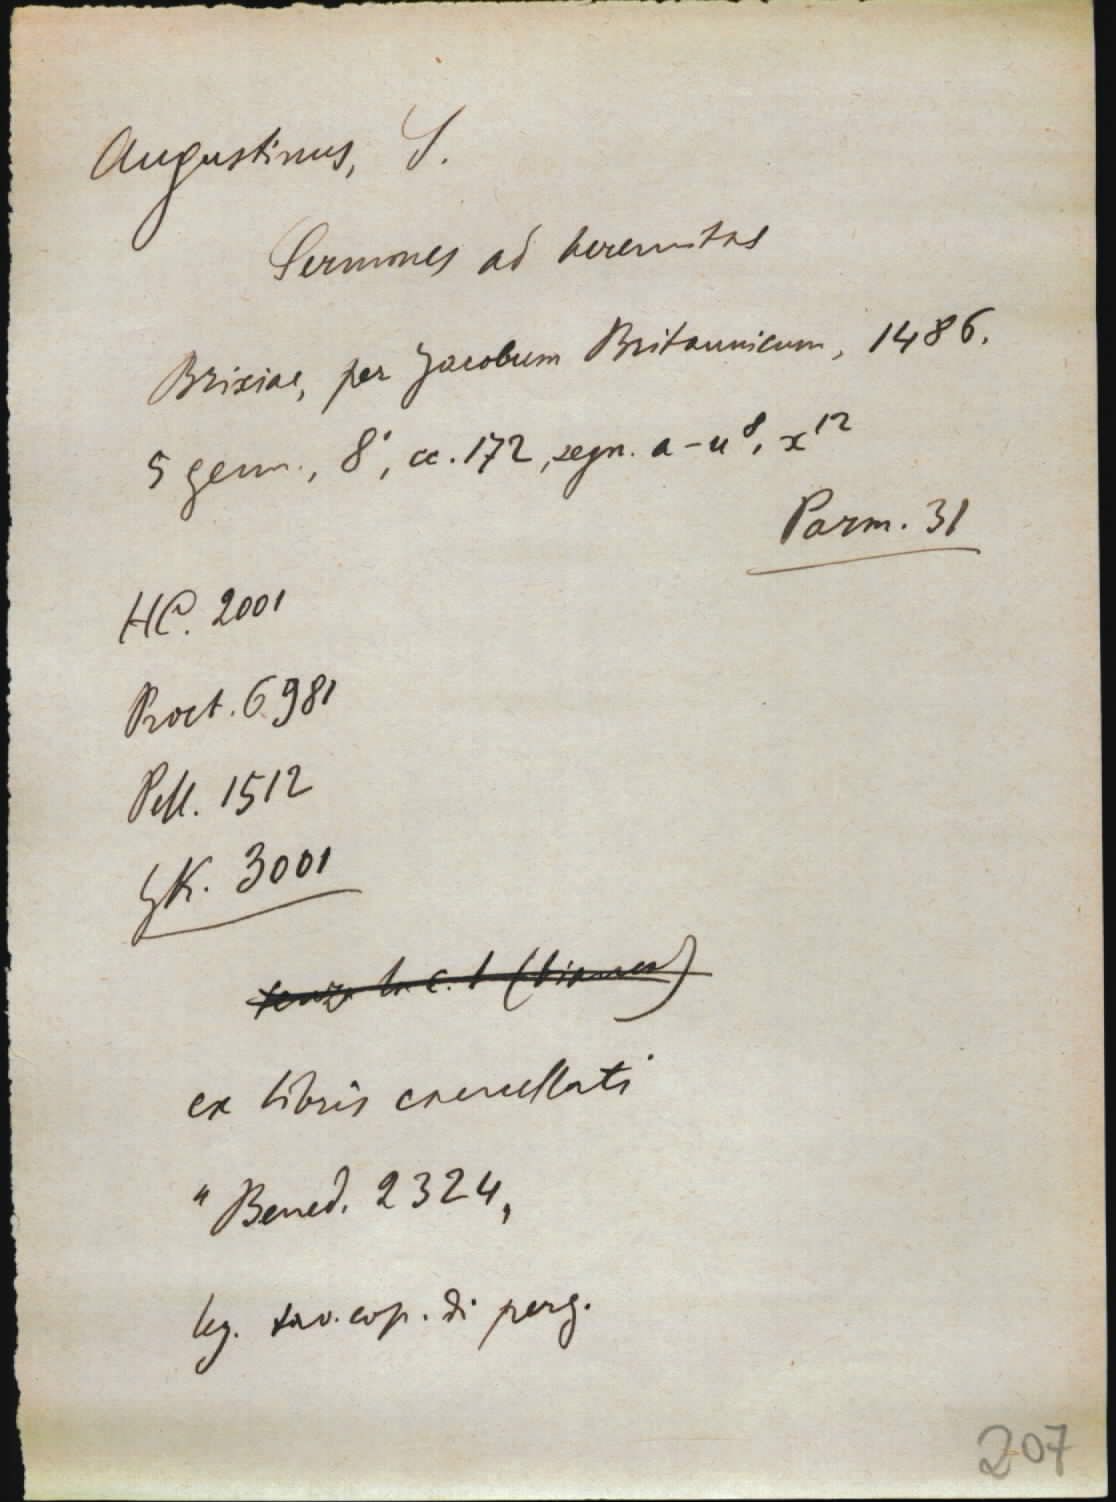 Augustinus, S.
Sermones ad heremitas
Brixiae, per Jacobum Britannicum, 1486.
5 genn., 8°, cc. 172, segn. a-u⁸, x¹²
Parm. 31
HC. 2001
Proct. 6981
Pell. 1512
GK. 3001
senza la c. 1 (bianca)
ex libris cancellati
" Bened. 2324,
leg. tav. cop. di perg.
207